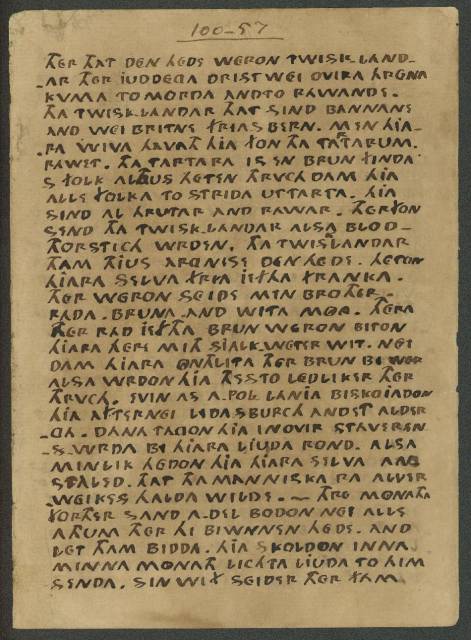 100-57
THER THAT DEN HEDE WERON TWISK-LAND-
AR THER IUDDEGA DRIST WEI OVIRA HRGNA
KVMA TO MORDA AND TO RAWANDE.
THA TWISK-LANDAR THAT SIND BANNANE
AND WEI BRITNE FRIAS BERN. MEN HIA-
RA WIVA HAVATH HIA FON THA TARTARUM.
RAWET. THA TARTARA IS EN BRUN FINDA
S FOLK ALTHUS HETEN THRVCH DAM HIA
ALLE FOLKA TO STRIDA UTTARTA. HIA
SIND AL HRUTAR AND RAWAR. THERFON
SEND THA TWISK-LANDAR ALSA BLOD-
THORSTICH WRDEN. THA TWISKLANDAR
THAM THIUS ARGNISE DEN HEDE. HETON
HIARA SELVA FRIA IEFTHA FRANKA.
THER WERON SEIDE MIN BROTHER-
RADA. BRUNA. AND WITA MONG. THERA
THER RAD IEFTHA BRUN WERON BITON
HIARA HERE MITH SIALK-WETER WIT. NEI
DAM HIARA ONTHLITA THER BRUN BI WER
ALSA WRDON HIA THES TO LEDLIKER THER
THRVCH. EVIN AS A-POL-LANIA BISKOIADON
HIA AFTERNEI LIDASBURCH ANDET ALDER
-GA. DANA TAGON HIA IN OVIR STAVEREN
-S-WRDA BI HIARA LIUDA ROND. ALSA
MINLIK HEDON HIA HIARA SELVA AN-
STALED. THAT THA MANNISKA RA ALLER
WEIKES HALDA WILDE. ~ THRE MONATHA
FORTHER SAND A-DEL BODON NEI ALLE
ATHUM THER HI BIWNNEN HEDE. AND
LET THAM BIDDA. HIA SKOLDON INNA
MINNA MONATH LICHTA LIUDA TO HIM
SENDA. SIN WIF SEIDER THER FAM